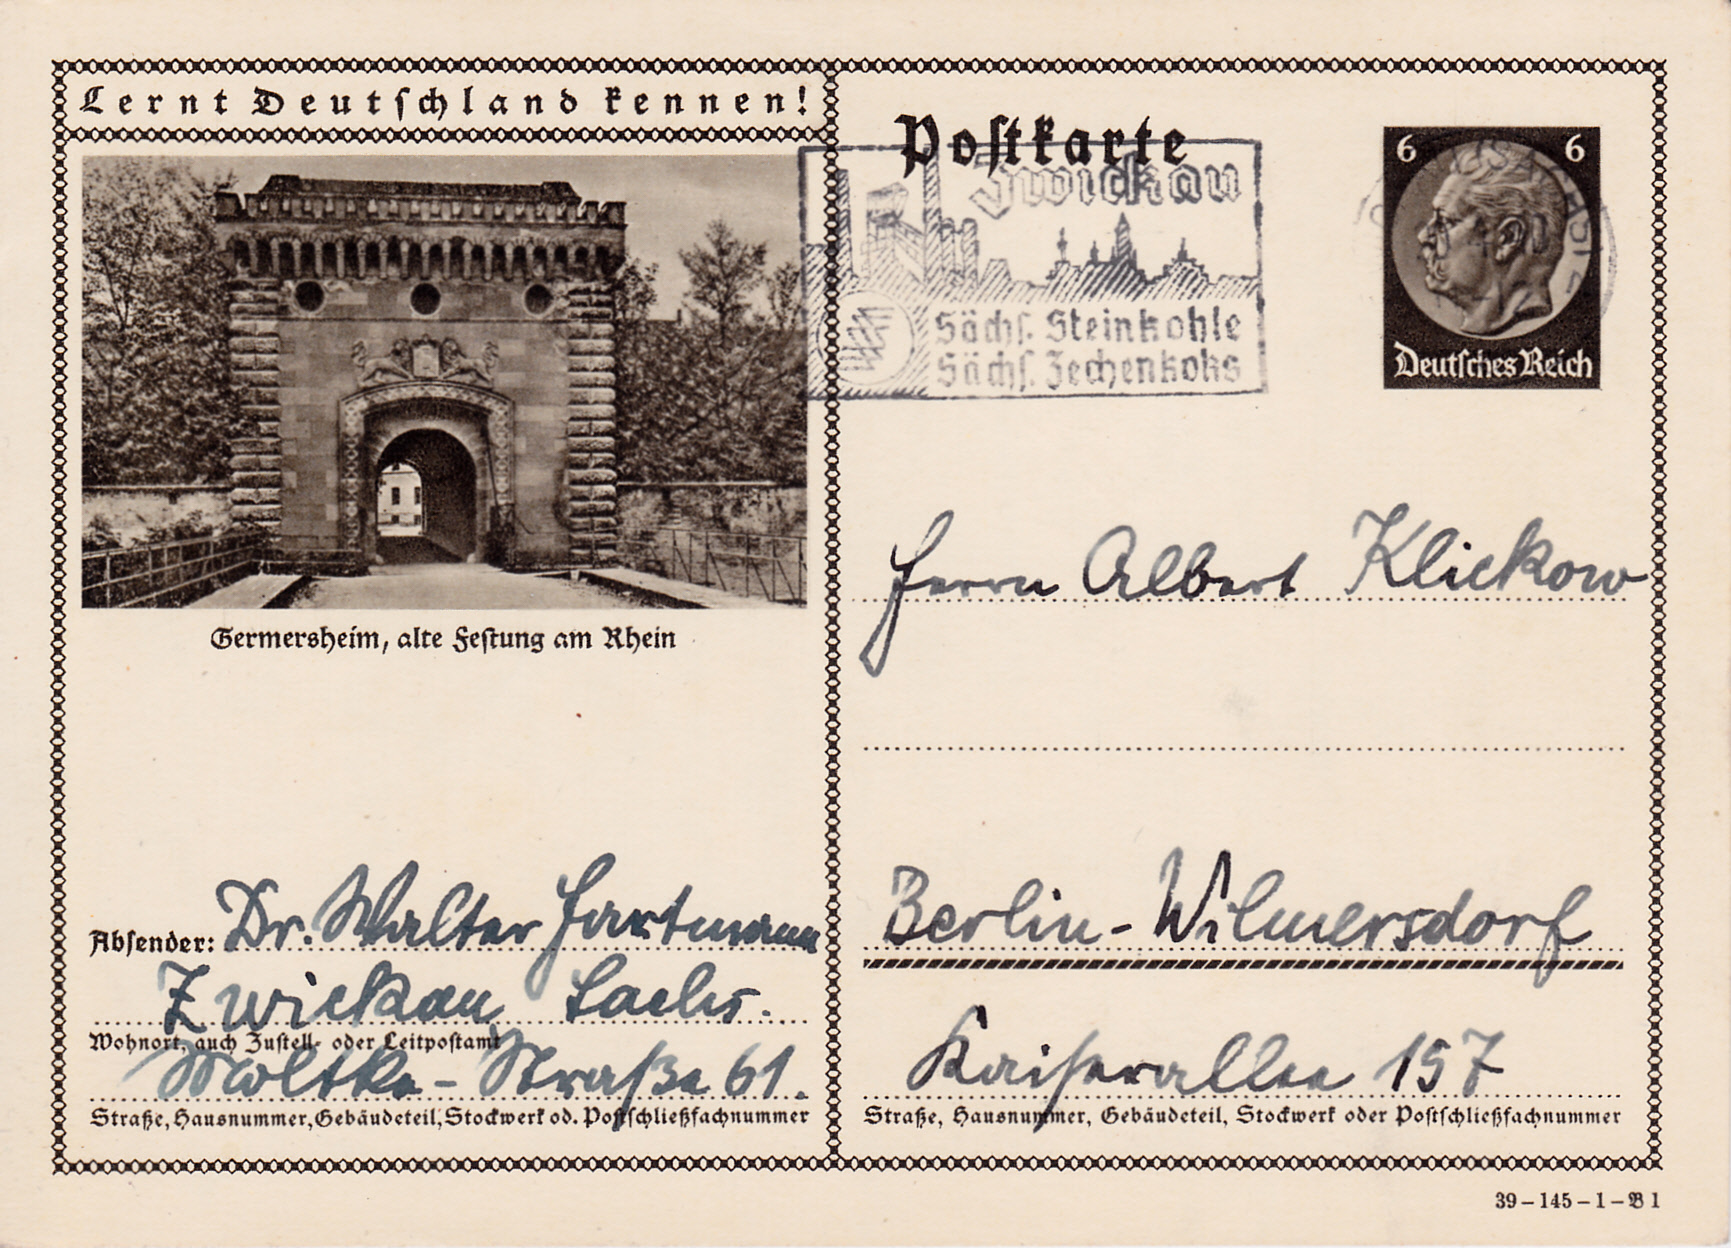 Lernt Deutschland kennen!
Germersheim, alte Festung am Rhein
Absender: Dr. Walter Hartmann
Zwickau Sachs.
Wohnort, auch Zustell- oder Leitpostamt
Moltke-Straße 61.
Straße, Hausnummer, Gebäudeteil, Stockwerk od. Postschließfachnummer
Postkarte
Zwickau
Sächs. Steinkohle
Sächs. Zechenkoks
6 6
Deutsches Reich
Herrn Albert Klickow
Berlin-Wilmersdorf
Kaiserallee 157
Straße, Hausnummer, Gebäudeteil, Stockwerk oder Postschließfachnummer
39-145-1-B 1